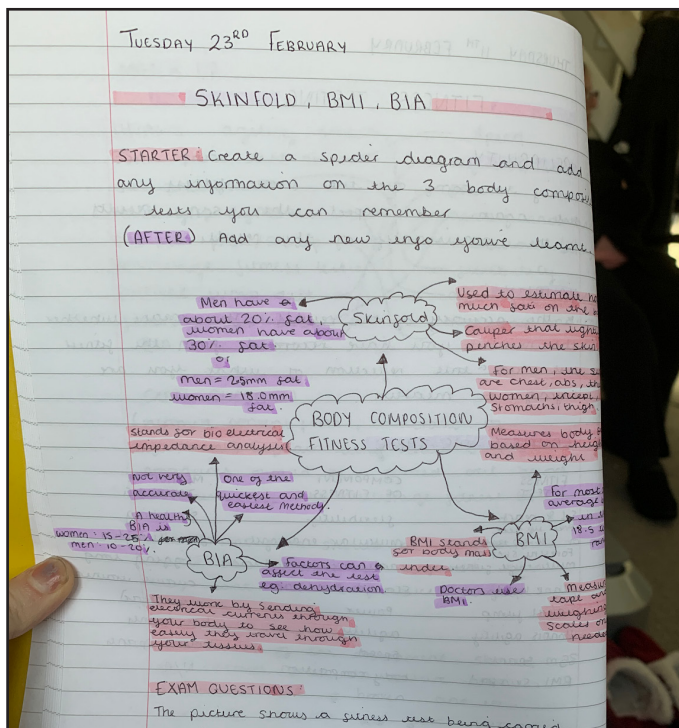 TUESDAY 23RD FEBRUARY
SKINFOLD, BMI, BIA
STARTER: Create a spider diagram and add
any information on the 3 body
tests you can remember
(AFTER) Add any new info youve
Skinfold
Men have
about 20% fat,
women have about
30% fat
or
men = 2.5mm fat
women = 18.0mm
fat.
Used to estimate
much fat on the
Caliper that
pinches the skin
For men, the
are chest, abs,
women,
stomachs, thigh,
BODY COMPOSITION
FITNESS TESTS
stands for bio electrical
impedance analysis
Not very
accurate
One of the
quickest and
easiest methods.
A healthy
BIA is
women: 15-25%
men: 10-20%
BIA
Factors can
affect the test
eg: dehydration
They work by sending
electrical currents through
your body to see how
easily they travel through
your tissues
Measures body
based on height
and weight
BMI
BMI stands
for body mass
index
Doctors use
BMI.
For most
average
in
18.5
Measure
tape and
weighing
scales
needed
EXAM QUESTIONS
The picture shows a fitness test being carried